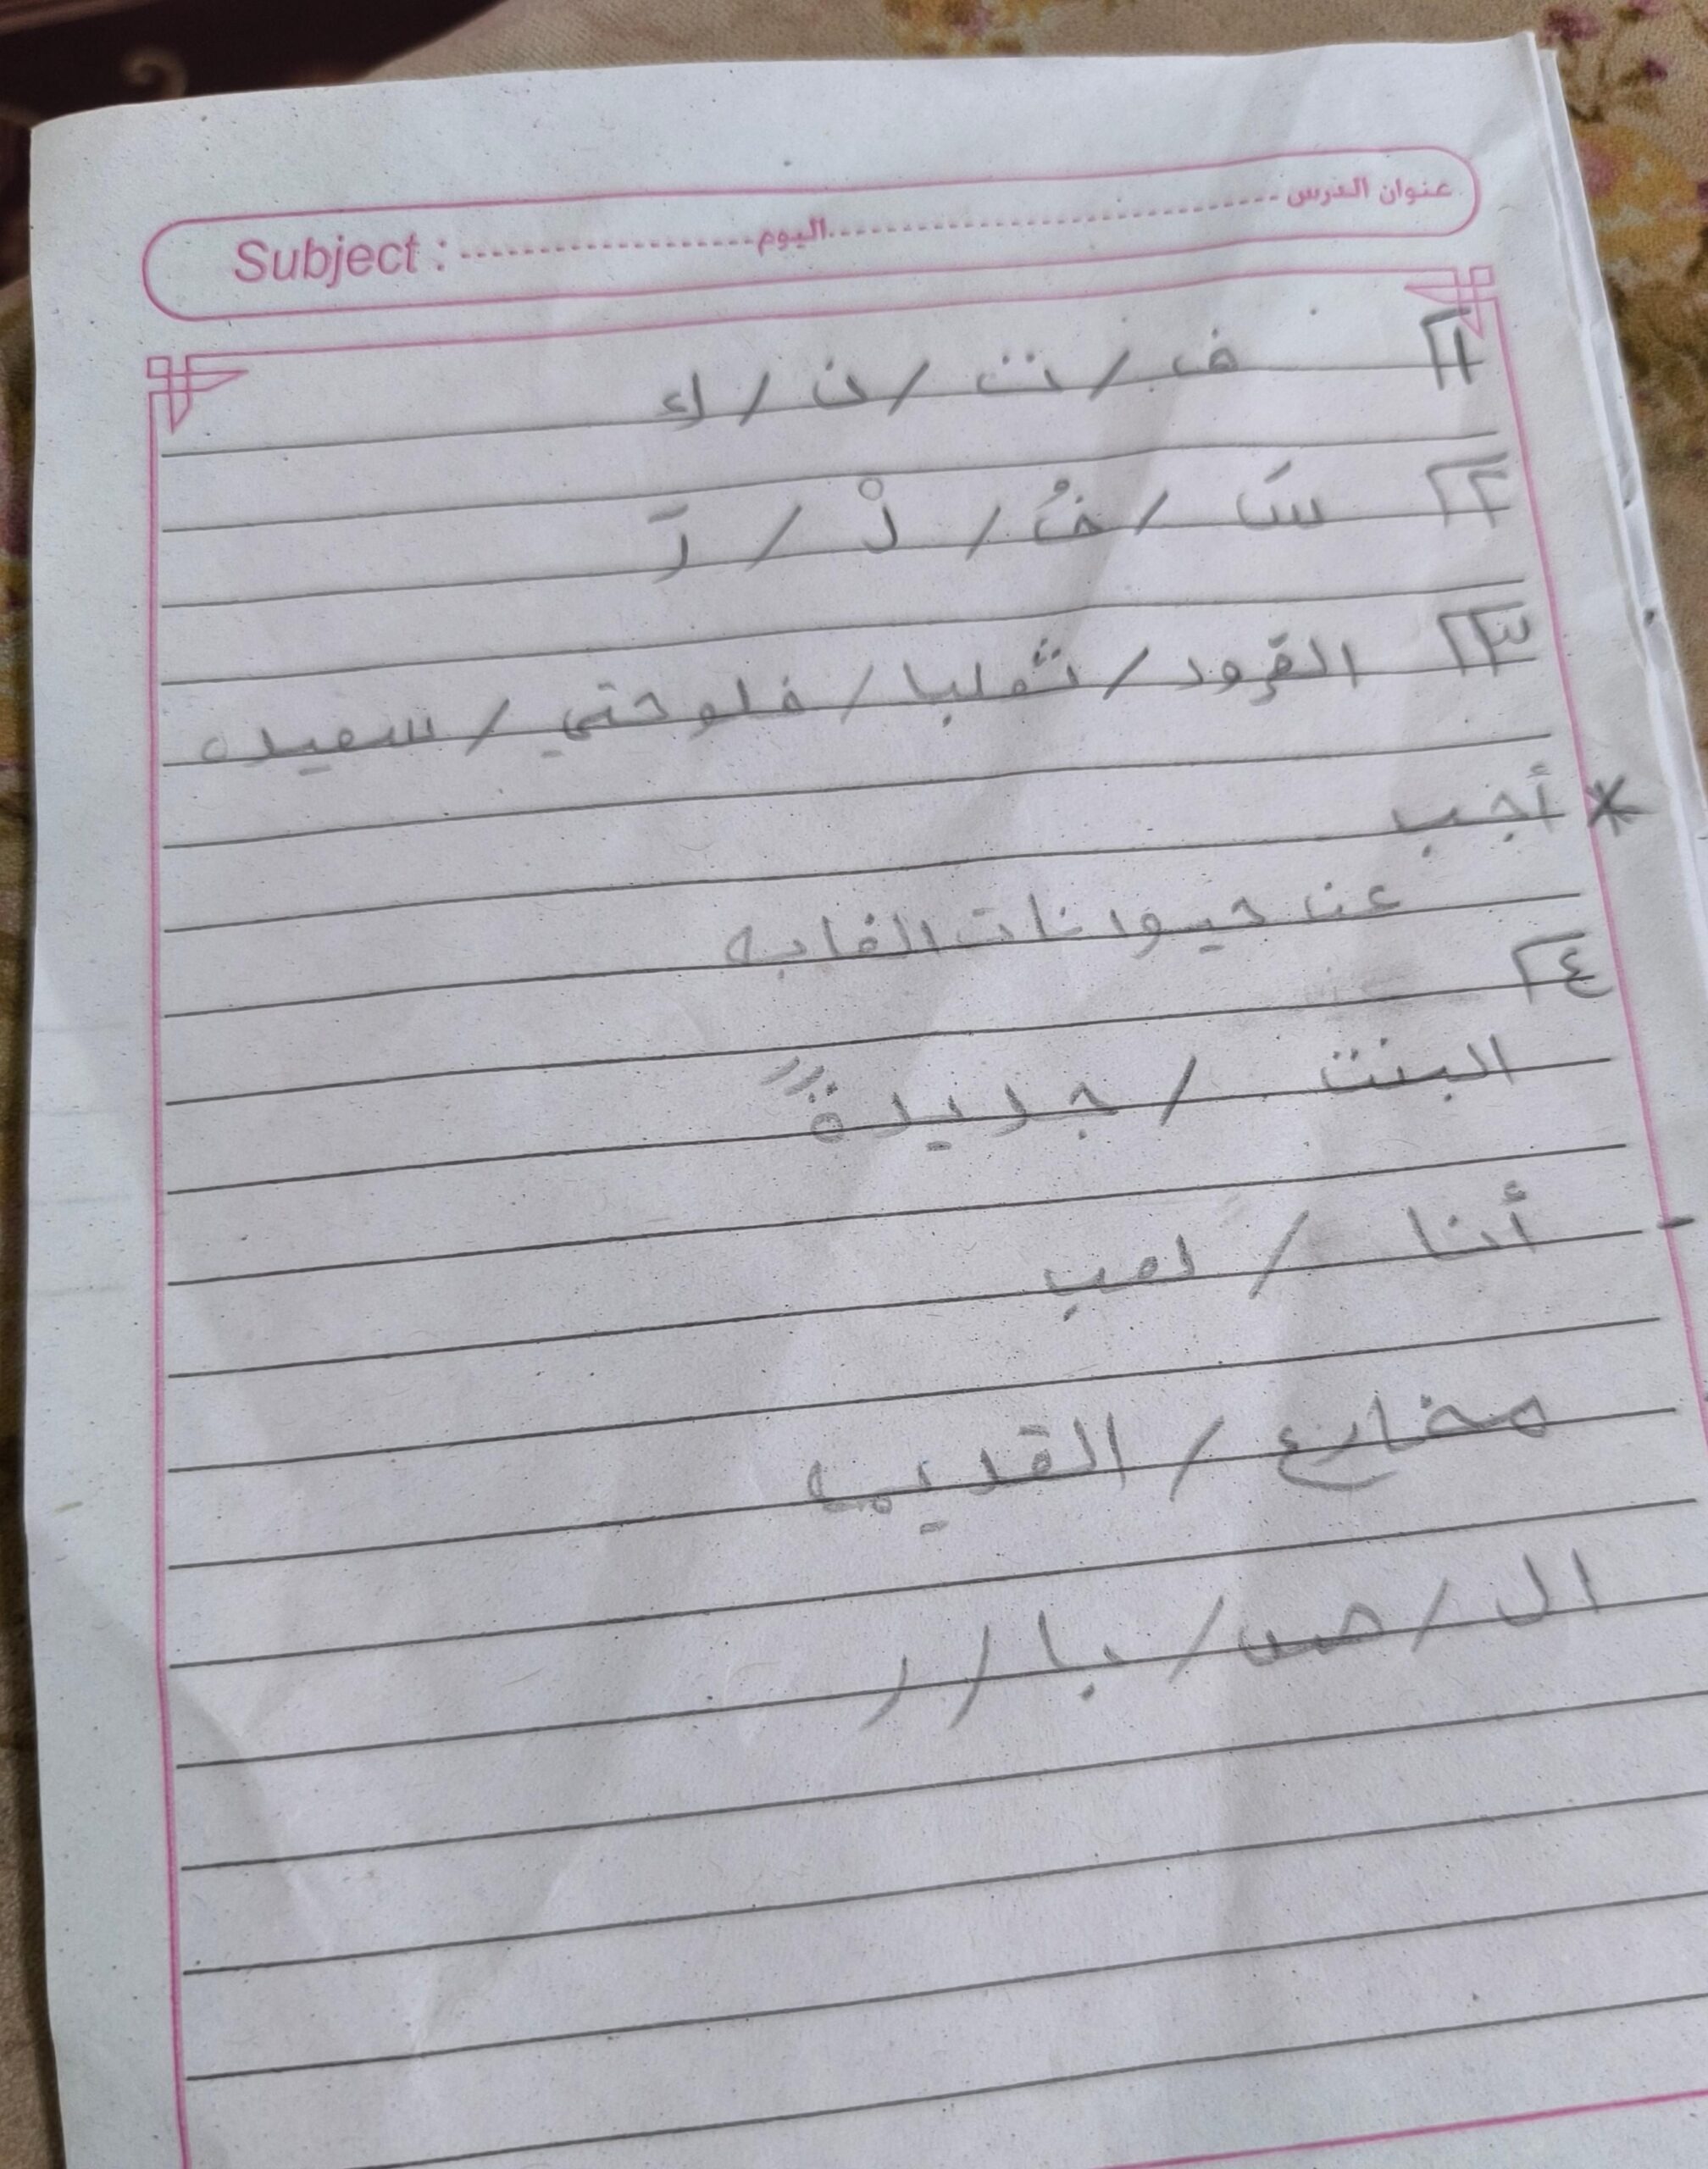 عنوان الدرس ........ اليوم ........ Subject :
١ ف / ت / ن / ك
٢ سَ / خُ / لْ / رَ
٣ القرود / ثعلبا / فلوحتي / سعيده
* أجب
عن حيونات الغابه
٤
البنت / جديدة
- أنا / لعب
مضارع / القديمه
ال / صـ / با / ر